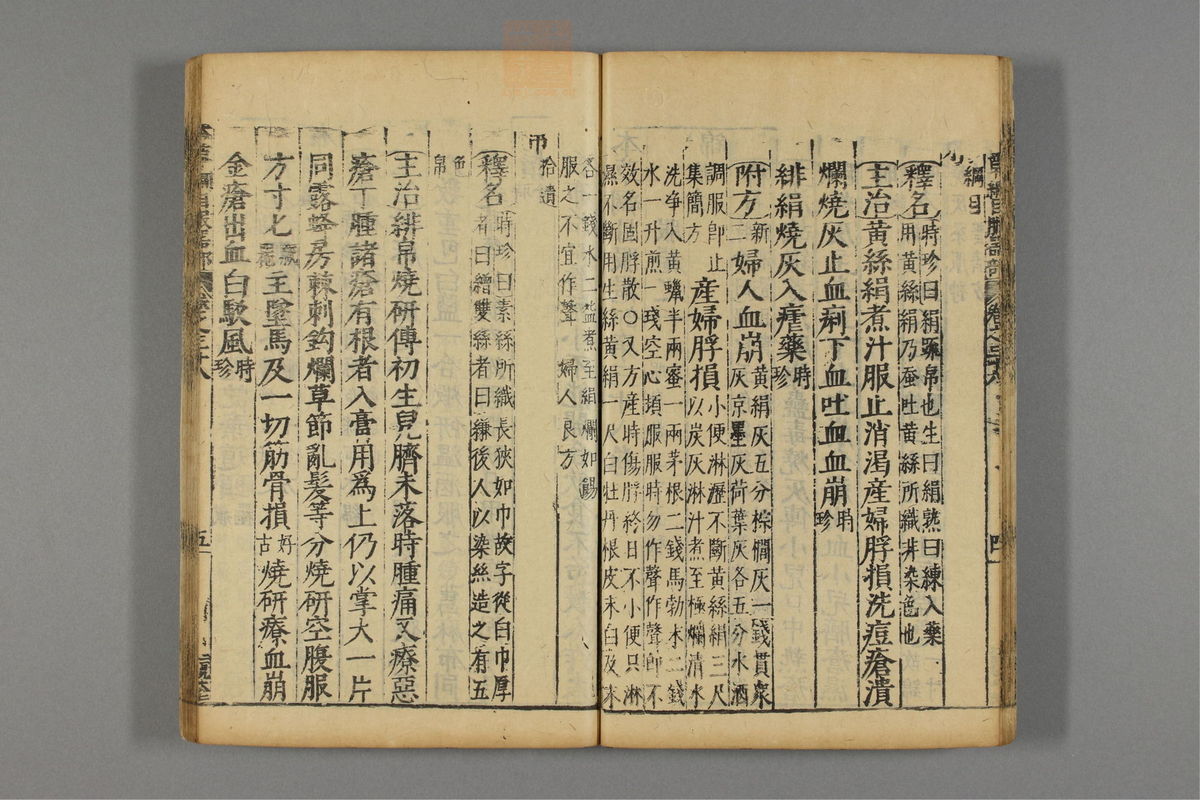 綱目
釋名時珍曰絹䟽帛也生曰絹熟曰練入藥
用黃絲絹乃蚕吐黃絲所織非染色也
主治黃絲絹煮汁服止消渴產婦脬損洗痘瘡潰
爛燒灰止血痢下血吐血血崩時珍
緋絹燒灰入瘧藥時珍
附方新二婦人血崩黃絹灰五分棕櫚灰一錢貫衆
灰京墨灰荷葉灰各五分水酒
調服卽止集簡方產婦脬損小便淋瀝不斷黃絲絹三尺
以炭灰淋汁煮至極爛清水
洗净入黃蠟半兩蜜一兩茅根二錢馬勃末二錢
水一升煎一琖空心頓服服時勿作聲作聲卽不
效名固脬散○又方產時傷脬終日不小便只淋
濕不斷用生絲黃絹一尺白牡丹根皮末白及末
各一錢水二盌煮至絹爛如餳
服之不宜作聲 婦人良方
帛拾遺
釋名時珍曰素絲所織長狹如巾故字從白巾厚
者曰繒雙絲者曰縑後人以染絲造之有五
色帛
主治緋帛燒研傅初生兒臍未落時腫痛又療惡
瘡丁腫諸瘡有根者入膏用爲上仍以掌大一片
同露蜂房棘刺鈎爛草節亂髮等分燒研空腹服
方寸匕藏器主墜馬及一切筋骨損好古燒研療血崩
金瘡出血白駁風時珍
五
四